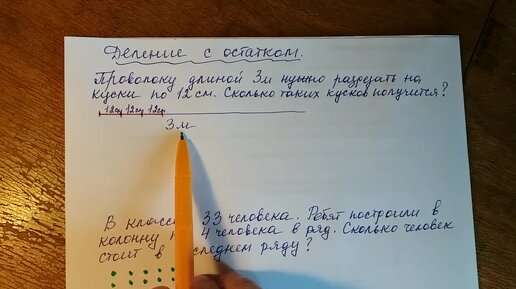 Деление с остатком.
Проволоку длиной 3м нужно разрезать на
куски по 12 см. Сколько таких кусков получится?
12см 12см 12см
3м
В классе 33 человека. Ребят построили в
колонну 4 человека в ряд. Сколько человек
стоит в последнем ряду?